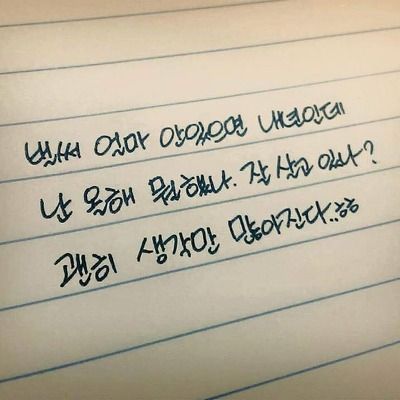 벌써 얼마 안있으면 내년인데
난 올해 뭘했나. 잘 살고 있나?
괜히 생각만 많아진다..흠흠